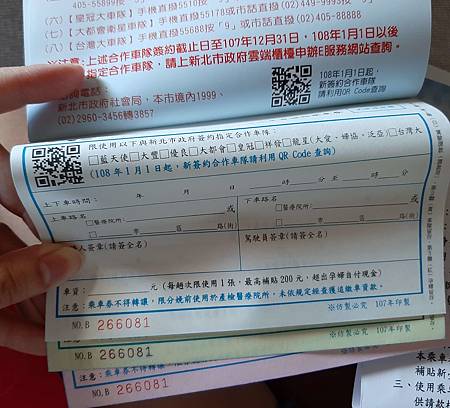 405-55899按"3"
(六)【皇冠大車隊】手機直撥55178或市話直撥(02)449-9993按"
(七)【大都會衛星車隊】手機直撥5510按"
(八)【台灣大車隊】手機直撥55688按"9"或市話直撥(02)405-88888
※注意:上述合作車隊簽約截止日至107年12月31日,108年1月1日以後
指定合作車隊,請上新北市政府雲端櫃檯申辦E服務網站查詢。
諮詢電話
新北市政府社會局,本市境內1999、
(02)2950-3456轉3857
108年1月1日起,
新簽約合作車隊
請利用QR Code查詢
限使用以下與新北市政府簽約指定合作車隊:
□藍天使□大豐□優良□大都會□皇冠□祥發□龍星(大愛、婦協、泛亞)□台灣大
(108年1月1日起,新簽約合作車隊請利用QR Code查詢)
上下車時間: 年 月 日 時 分至 時 分
上車路名:□醫療院所: 或
□ 市 區 路(街)
下車路名:□醫療院所: 或
□ 市 區 路(街)
人簽章(請簽全名)
駕駛員簽章(請簽全名)
車資: 元(每趟次限使用1張,最高補貼200元,超出孕婦自付現金)
注意:乘車券不得轉讓,限分娩前使用於產檢醫療院所,未依規定經查獲追繳車資款。
NO.B 266081
※仿製必究 107年印製
NO.B 266081
※仿製必究 107年印製
注意:乘車券不得轉讓,限
NO.B 266081
本乘車
補貼新
三、使用乘
供請款